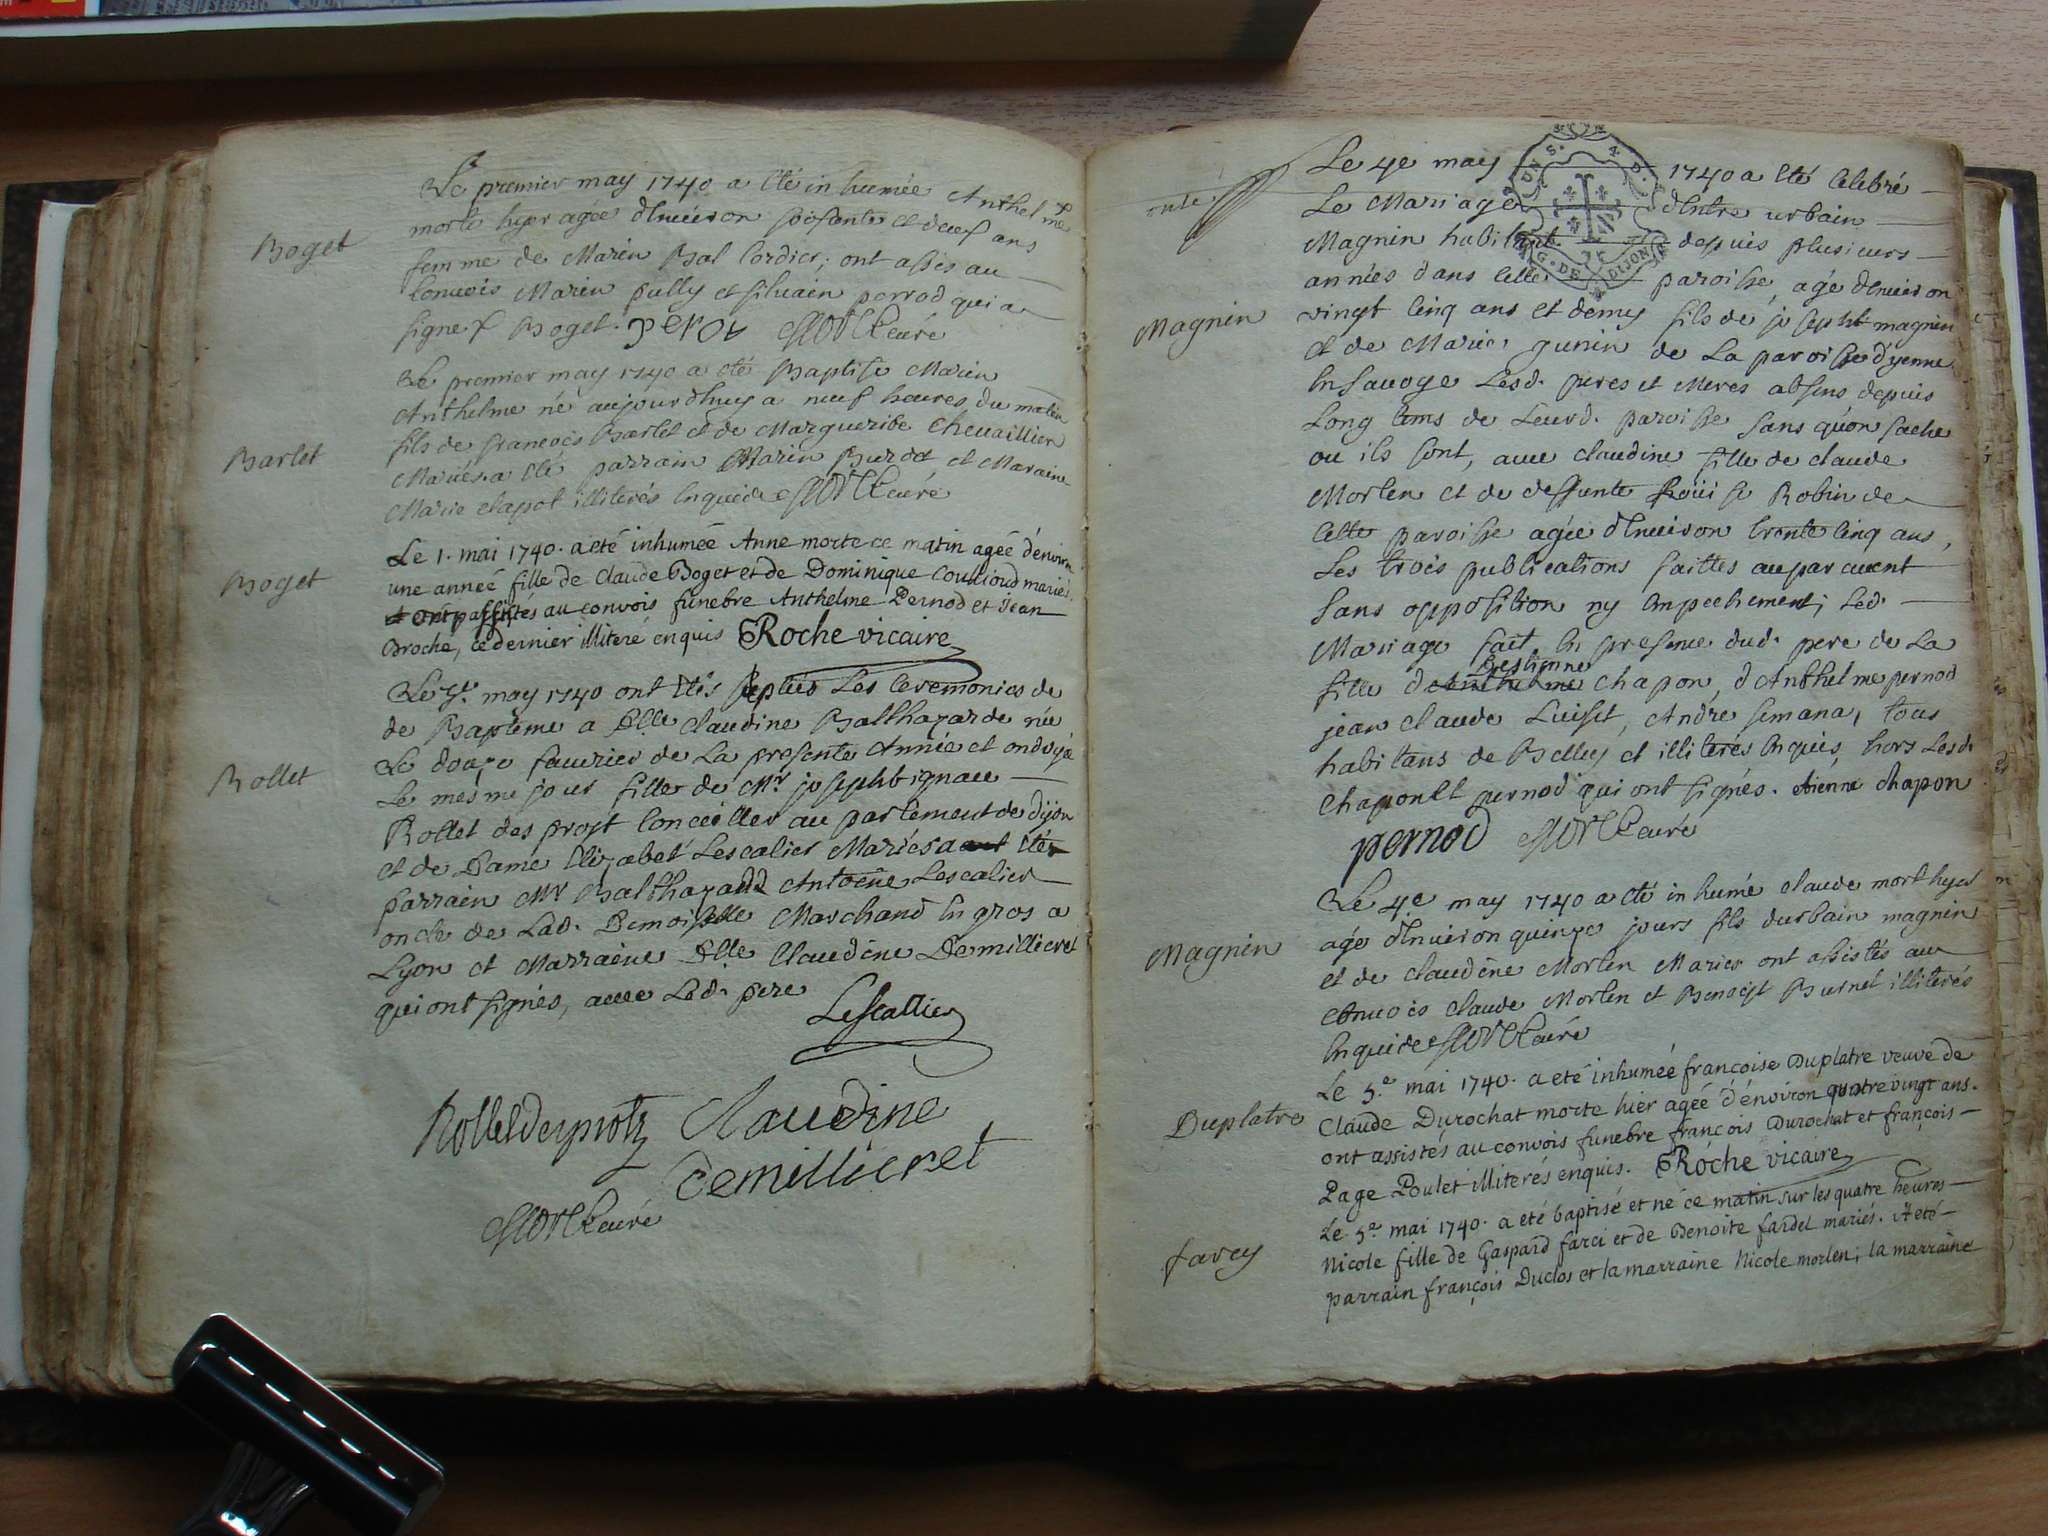 Boget
Le premier may 1740 a eté inhumée Anthelme
morte hyer agée d'environ soisante et deux ans
femme de Marin Bal Cordier; ont assis au
Convois Marin pully et silvain perrod qui a
signe x Boget. perot curé
Barlet
Le premier may 1740 a eté Baptise Marin
Anthelme né aujourdhuy a neuf heures du matin
fils de françois Barlet et de Margueritte Chevaillier
Mariés. a eté parrain Marin Burdet et Maraine
Marie Chapot illiterés Enquis curé
Boget
Le 1. mai 1740. a eté inhumée Anne morte ce matin agée d'environ
une année fille de Claude Boget et de Dominique Coullioud mariés.
ont assistés au convois funebre Anthelme Pernod et Jean
Broche, ce dernier illiteré enquis Roche vicaire
Rollet
may 1740 ont étés supleés Les Ceremonies de
de Bapteme a Elle Claudine Balthazarde née
Le douze fevrier de La presente Année et ondoyée
Le mesme jour fille de Mr josepht ignace
Rollet des prost Conceiller au parlement de Dijon
et de Dame Elizabet Lescalier Mariés a eté
parrain Mr Balthazard Antoine Lescalier
oncle de Lad. Demoiselle Marchand En gros a
Lyon et Marraine Dlle Claudine Demillieret
qui ont signés, avec Led. pere
Lescallier
Rolletdesprotz Claudine
demillieret
curé
Le 4e may 1740 a eté Celebré
Le Mariage d'Entre urbain
Magnin habitant depuis plusieurs
années dans Cette paroisse, agé d'environ
Magnin
vingt Cinq ans et demy fils de josepht magnin
et de Marie gunin de La paroisse d'yenne
En Savoye Lesd. peres et Meres absens depuis
Long tems de Leurd. paroisse sans qu'on sache
ou ils sont, avec Claudine fille de Claude
Morten et de deffunte Loüise Robin de
Cette paroisse agée d'Environ trente Cinq ans,
Les trois publications faittes auparavent
sans opposition ny Empechement; Led.
Mariage fait En presence dud. pere de La
fille d'Estienne chapon, d'Anthelme pernod
jean Claude Luiset, Andre semana, tous
habitans de Belley et illiterés Enquis, hors Lesd.
Chapon et pernod qui ont signés. etienne chapon
pernod curé
Magnin
Le 4e may 1740 a eté inhumé Claude mort hyer
agé d'Environ quinze jours fils d'urbain magnin
et de Claudine Morten Mariés ont assistés au
Convois Claude Morten et Benoist Burnet illiterés
Enquis curé
Duplatre
Le 5.e mai 1740. a eté inhumée françoise Duplatre veuve de
Claude Durochat morte hier agée d'environ quatre vingt ans.
ont assistés au convois funebre françois Durochat et françois
Page Poulet illiterés enquis. Roche vicaire
farcy
Le 5.e mai 1740. a eté baptisé et né ce matin sur les quatre heures
Nicole fille de Gaspard farci et de Benoite fardel mariés. A eté
parrain françois Duclos et la marraine Nicole morten; la marraine